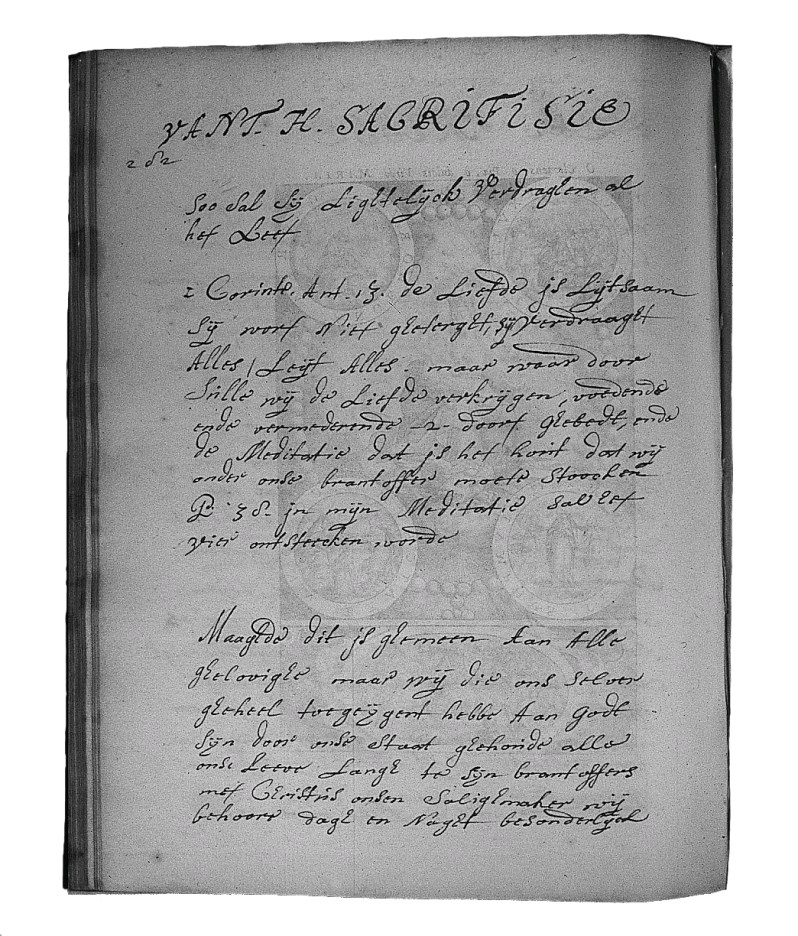 VANT. H. SACRIFISIE
282
soo sal sij Ligtelijck Verdraghen al
het Leet
1 Corinte. Ant. 13. de Liefde is Lijtsaam
sij wort Niet gheterget, sij verdraaght
Alles, Leijt Alles. maar waar door
sulle wij de Liefde verkrijgen, voedende
ende vermederende -2- doort ghebedt, ende
de Meditatie dat is het hout dat wij
onder onse brantoffer moete stoocken
Ps 38. in mijn Meditatie sal het
vier ontsteecken worde
Maaghde dit is ghemeen Aan Alle
ghelovighe maar wij die ons selver
gheheel toegeijgent hebbe Aan Godt
sijn door onse staat ghehoude alle
onse Leeve Langh te sijn brantoffers
met Christus onsen Salighmaker wij
behoore dagh en Naght besonderlijck